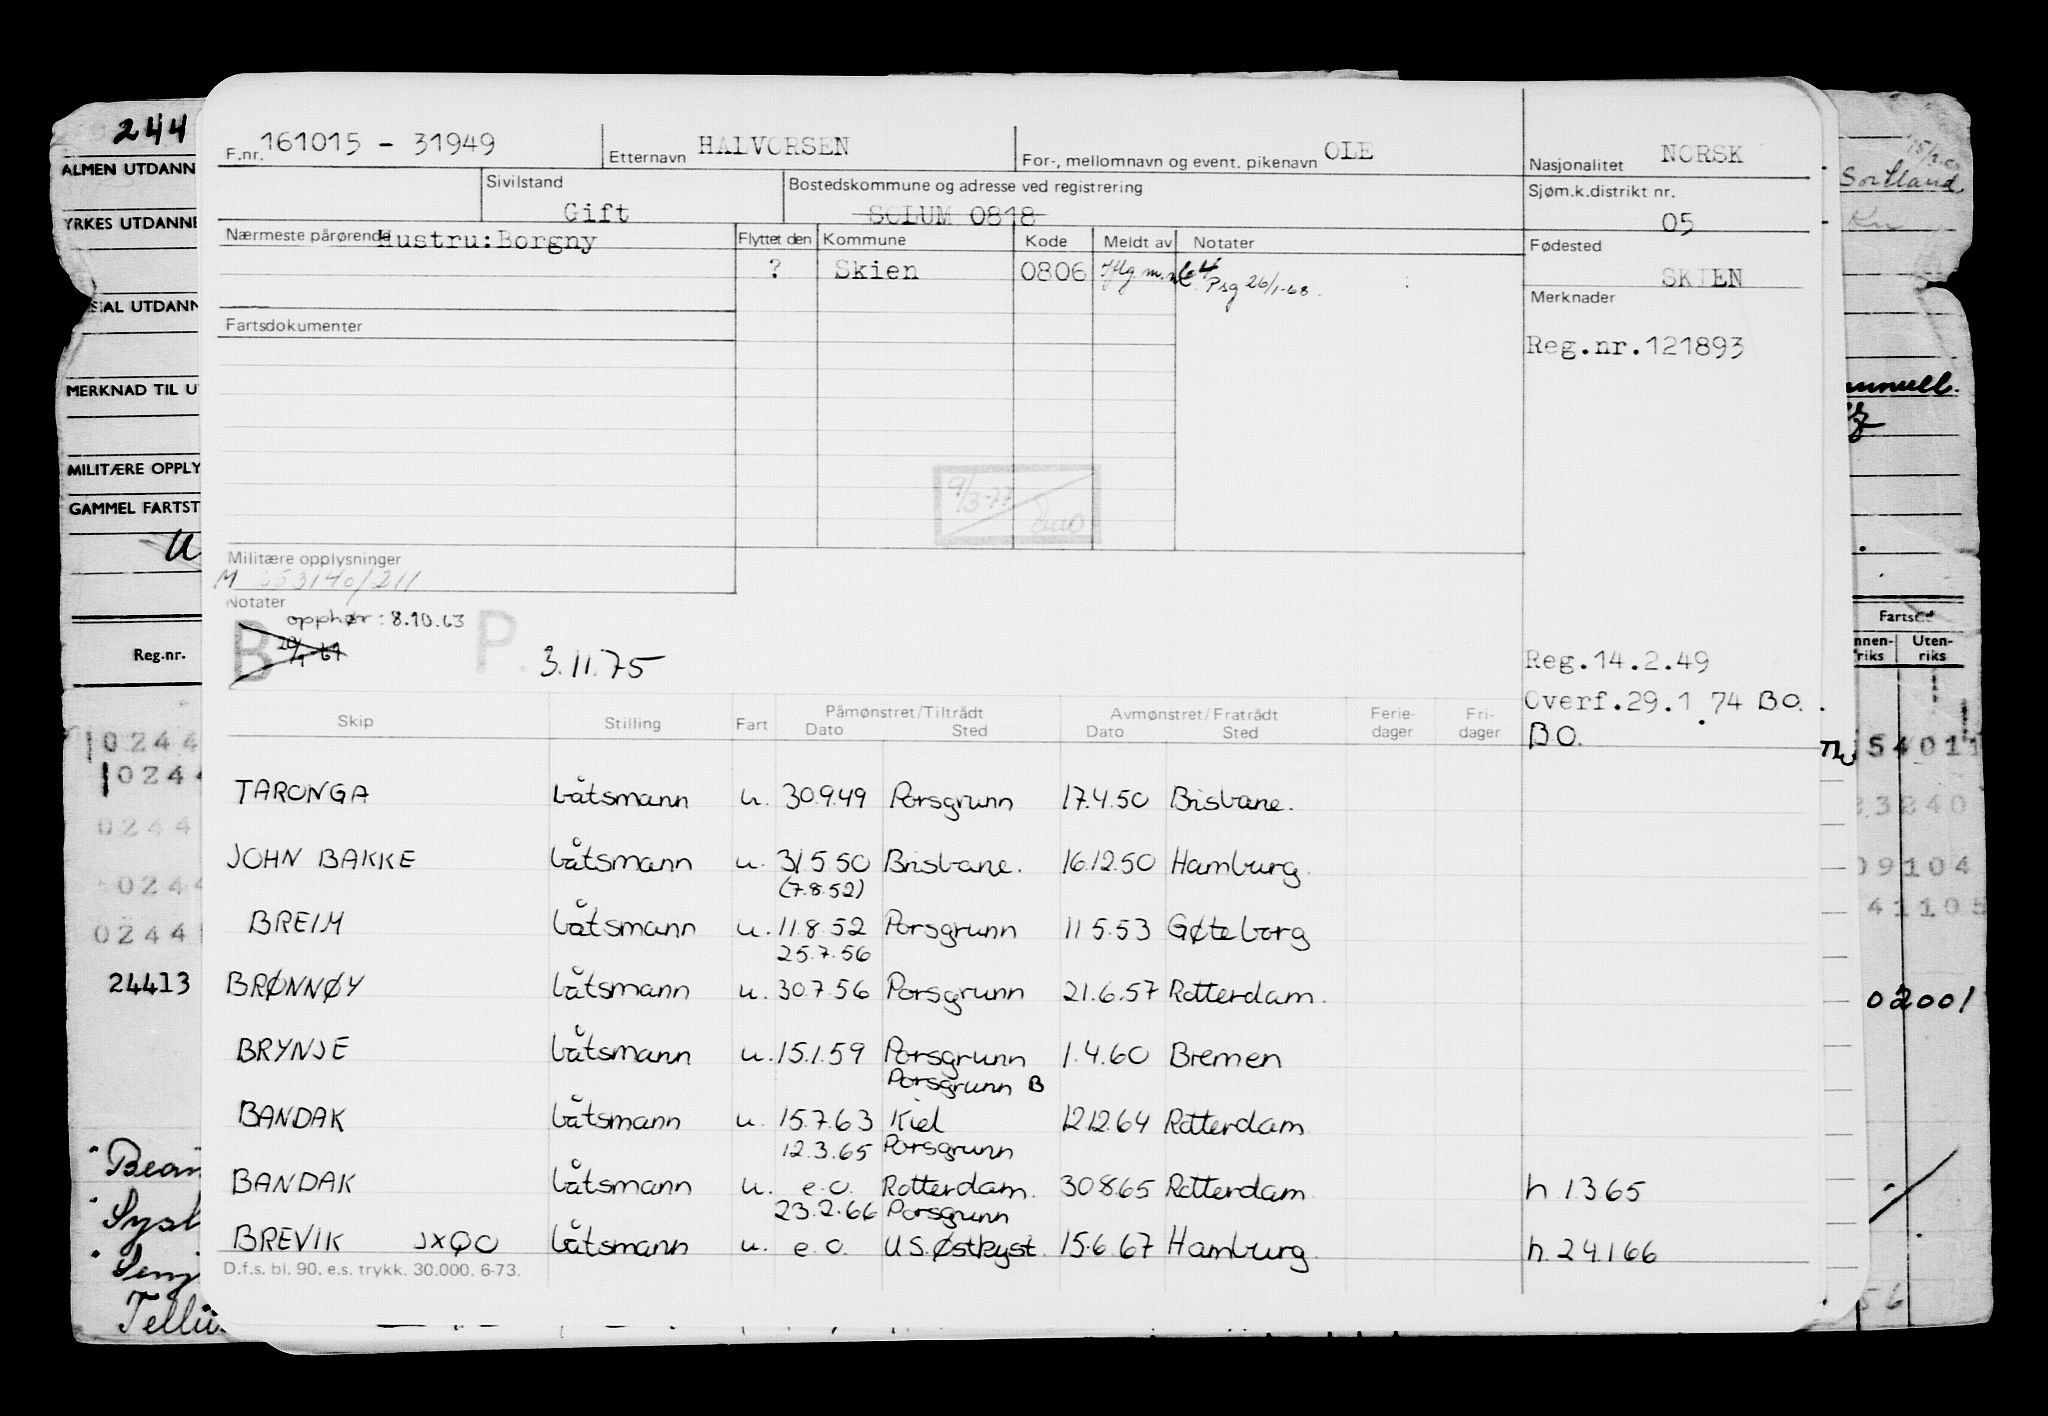 244
ALMEN UTDANN
YRKES UTDANNE
SIAL UTDANN
MERKNAD TIL U
MILITÆRE OPPLY
GAMMEL FARTST
U
Reg.nr.
0244
0244
0244
0244
0244
24413
Tellu
F.nr. 161015 - 31949 Etternavn HALVORSEN For-, mellomnavn og event. pikenavn OLE Nasjonalitet NORSK
Sivilstand Gift Bostedskommune og adresse ved registrering SOLUM 0818 Sjøm.k.distrikt nr. 05
Nærmeste pårørende Hustru: Borgny Flyttet den Kommune Kode Meldt av Notater Fødested SKIEN
? Skien 0806 Psg 26/1-68.
Merknader
Reg.nr.121893
Fartsdokumenter
9/3-77
Militære opplysninger
M 253140/211
Notater
opphør: 8.10.63
B P. 3.11.75
Reg.14.2.49
Overf.29.1.74 B.O.
B O.
Skip Stilling Fart Påmønstret/Tiltrådt Dato Sted Avmønstret/Fratrådt Dato Sted Ferie-dager Fri-dager
TARONGA båtsmann u. 30.9.49 Porsgrunn 17.4.50 Brisbane.
JOHN BAKKE båtsmann u. 31.5.50 Brisbane. 16.12.50 Hamburg.
(7.8.52)
BREIM båtsmann u. 11.8.52 Porsgrunn 11.5.53 Gøteborg
25.7.56
BRØNNØY båtsmann u. 30.7.56 Porsgrunn 21.6.57 Rotterdam.
BRYNJE båtsmann u. 15.1.59 Porsgrunn 1.4.60 Bremen
Porsgrunn B
BANDAK båtsmann u. 15.7.63 Kiel 12.12.64 Rotterdam
12.3.65 Porsgrunn
BANDAK båtsmann u. e.o. Rotterdam. 30.8.65 Rotterdam h 1.3.65
23.2.66 Porsgrunn
BREVIK JXQO båtsmann u. e.o. U.S. Østkyst. 15.6.67 Hamburg. h. 24.1.66
D.f.s. bl. 90. e.s. trykk. 30.000. 6-73.
Sortland
Fartstid
nnen-riks Uten-riks
54011
23840
09104
41105
02001
56